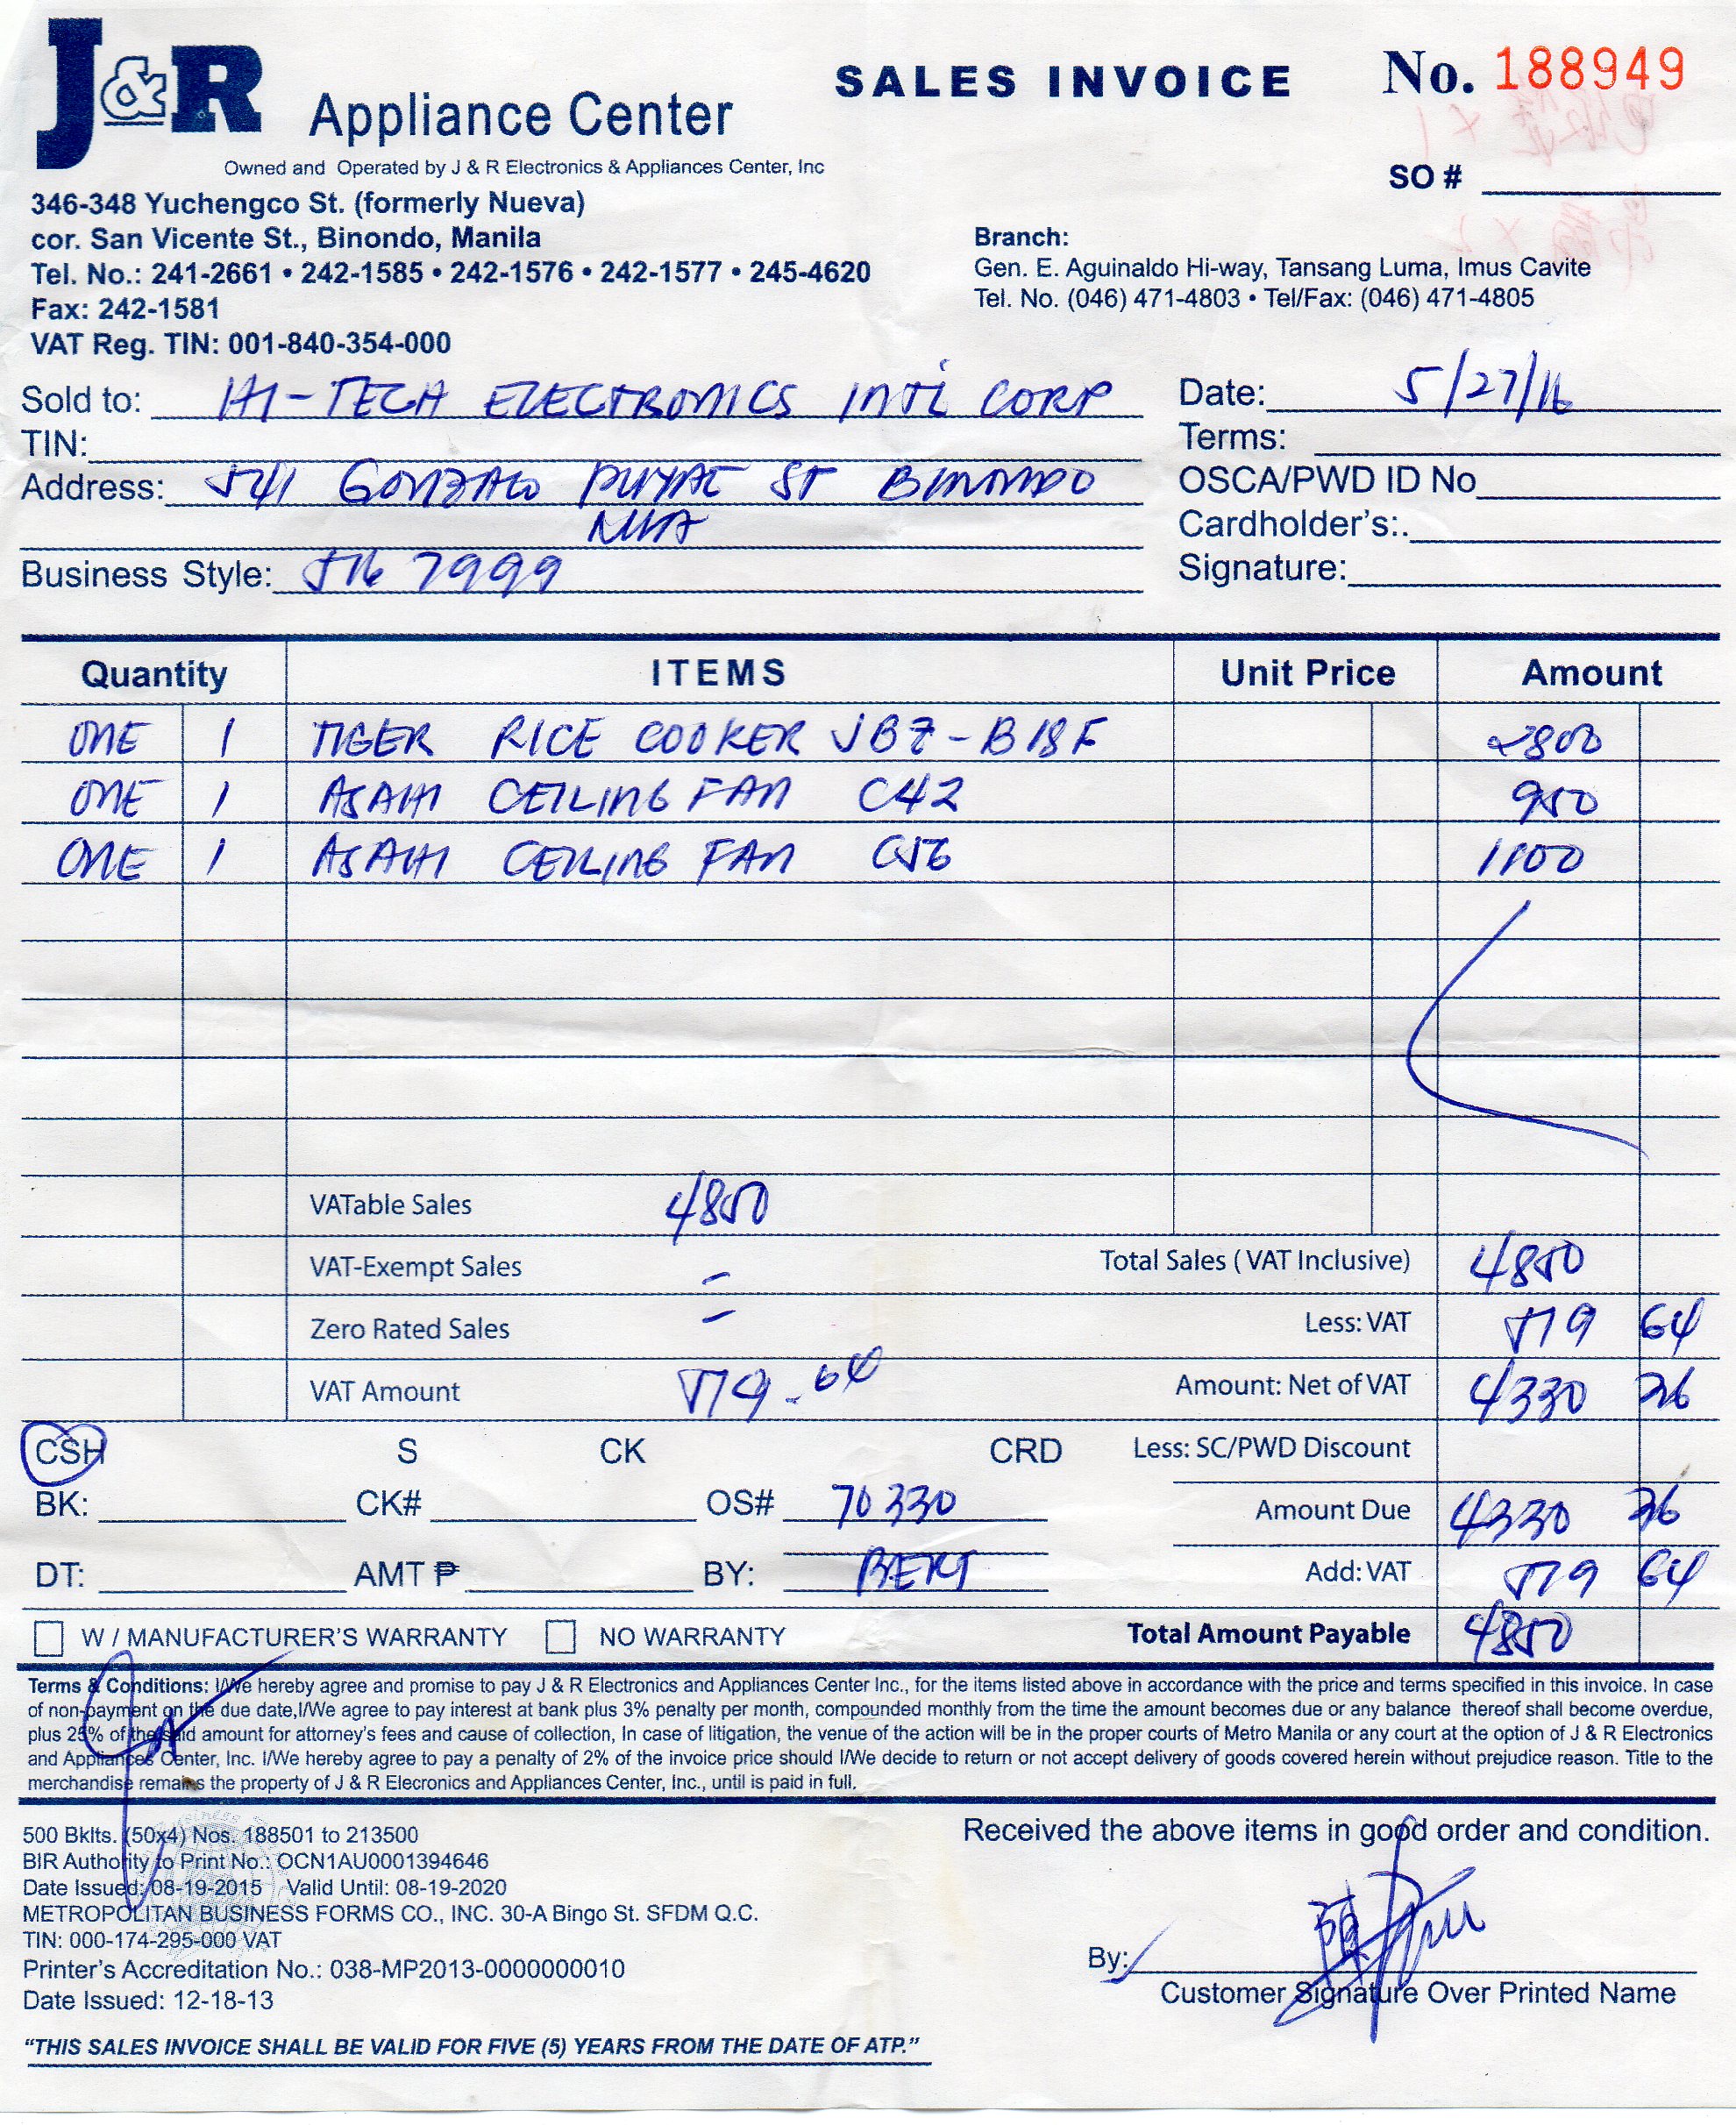 J&R Appliance Center
SALES INVOICE No. 188949
Owned and Operated by J & R Electronics & Appliances Center, Inc
SO #
346-348 Yuchengco St. (formerly Nueva)
cor. San Vicente St., Binondo, Manila
Tel. No.: 241-2661 • 242-1585 • 242-1576 • 242-1577 • 245-4620
Fax: 242-1581
VAT Reg. TIN: 001-840-354-000
Branch:
Gen. E. Aguinaldo Hi-way, Tansang Luma, Imus Cavite
Tel. No. (046) 471-4803 • Tel/Fax: (046) 471-4805
Sold to: HI-TECH ELECTRONICS INTL CORP
Date: 5/27/16
TIN:
Terms:
Address: 541 GONZALO PUYAT ST BINONDO
MLA
OSCA/PWD ID No
Cardholder's:.
Business Style: 516 7999
Signature:
Quantity ITEMS Unit Price Amount
ONE 1 TIGER RICE COOKER JBZ-B18F 2800
ONE 1 ASAHI CEILING FAN C42 950
ONE 1 ASAHI CEILING FAN C56 1100
VATable Sales 4850
VAT-Exempt Sales – Total Sales (VAT Inclusive) 4850
Zero Rated Sales – Less: VAT 519 64
VAT Amount 519-64 Amount: Net of VAT 4330 36
CSH S CK CRD Less: SC/PWD Discount
BK: CK# OS# 70330 Amount Due 4330 36
DT: AMT ₱ BY: BERT Add: VAT 519 64
W / MANUFACTURER'S WARRANTY NO WARRANTY Total Amount Payable 4850
Terms & Conditions: I/We hereby agree and promise to pay J & R Electronics and Appliances Center Inc., for the items listed above in accordance with the price and terms specified in this invoice. In case
of non-payment on the due date,I/We agree to pay interest at bank plus 3% penalty per month, compounded monthly from the time the amount becomes due or any balance thereof shall become overdue,
plus 25% of the said amount for attorney's fees and cause of collection, In case of litigation, the venue of the action will be in the proper courts of Metro Manila or any court at the option of J & R Electronics
and Appliances Center, Inc. I/We hereby agree to pay a penalty of 2% of the invoice price should I/We decide to return or not accept delivery of goods covered herein without prejudice reason. Title to the
merchandise remains the property of J & R Elecronics and Appliances Center, Inc., until is paid in full.
500 Bklts. (50x4) Nos. 188501 to 213500
BIR Authority to Print No.: OCN1AU0001394646
Date Issued: 08-19-2015 Valid Until: 08-19-2020
METROPOLITAN BUSINESS FORMS CO., INC. 30-A Bingo St. SFDM Q.C.
TIN: 000-174-295-000 VAT
Printer's Accreditation No.: 038-MP2013-0000000010
Date Issued: 12-18-13
"THIS SALES INVOICE SHALL BE VALID FOR FIVE (5) YEARS FROM THE DATE OF ATP."
Received the above items in good order and condition.
By:
Customer Signature Over Printed Name